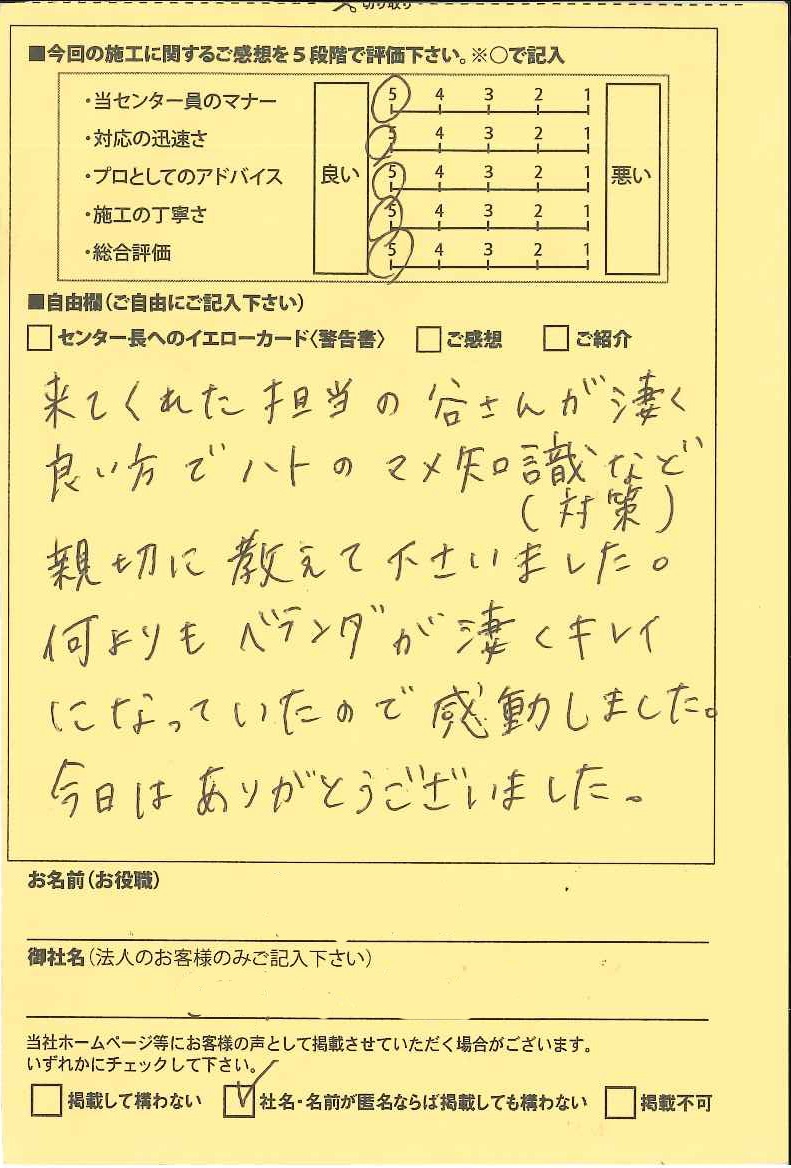 切り取り
■今回の施工に関するご感想を5段階で評価下さい。※○で記入
・当センター員のマナー 5 4 3 2 1
・対応の迅速さ 5 4 3 2 1
・プロとしてのアドバイス 良い 5 4 3 2 1 悪い
・施工の丁寧さ 5 4 3 2 1
・総合評価 5 4 3 2 1
■自由欄（ご自由にご記入下さい）
□センター長へのイエローカード〈警告書〉 □ご感想 □ご紹介
来てくれた担当の谷さんが凄く
良い方でハトのマメ知識など
（対策）
親切に教えて下さいました。
何よりもベランダが凄くキレイ
になっていたので感動しました。
今日はありがとうございました。
お名前（お役職）
御社名（法人のお客様のみご記入下さい）
当社ホームページ等にお客様の声として掲載させていただく場合がございます。
いずれかにチェックして下さい。
□掲載して構わない ☑社名・名前が匿名ならば掲載しても構わない □掲載不可